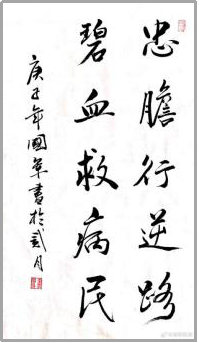 忠胆行逆路
碧血救病民
庚子年國華書於貳月